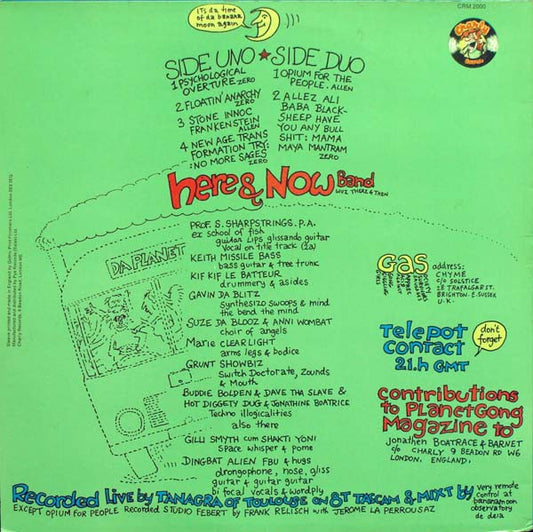 iTs da time
of da banana
moon again
CRM 2000
Charly
SIDE UNO ★ SIDE DUO
1 PSYCHOLOGICAL
OVERTURE ZERO
2 FLOATIN' ANARCHY
ZERO
3 STONE INNOC
FRANKENSTEIN
ALLEN
4 NEW AGE TRANS
FORMATION TRY:
:NO MORE SAGES
ZERO
1 OPIUM FOR THE
PEOPLE. ALLEN
2 ALLEZ ALI
BABA BLACK-
SHEEP HAVE
YOU ANY BULL
SHIT: MAMA
MAYA MANTRAM
ZERO
here & NOW Band
LIVE THERE & THEN
DA PLANET
PROF. S. SHARPSTRINGS. P.A.
ex school of fish
guitar Lips glissando guitar
Vocal on title track (2a)
KEITH MISSILE BASS
bass guitar & tree trunk
KIF KIF LE BATTEUR
drummery & asides
GAVIN DA BLITZ
Synthesizo swoops & mind
the bend the mind
SUZE DA BLOOZ & ANNI WOMBAT
choir of angels
Marie CLEAR LIGHT
arms legs & bodice
GRUNT SHOWBIZ
Switch Doctorate, Zounds
& Mouth
BUDDIE BOLDEN & DAVE THA SLAVE &
HOT DIGGETY DUG & JONATHINE BOATRICE
Techno illogicalities
also there
GILLI SMYTH cum SHAKTI YONI
Space whisper & pome
DINGBAT ALIEN FBU & hugs
drongophone, nose, gliss
guitar & guitar guitar
bi focal vocals & wordply
GAS address:
CHYME
c/o SOLSTICE
28 TRAFALGAR ST.
BRIGHTON. E. SUSSEX
U.K.
Telepot
Contact
21.h GMT
don't
forget
contributions
to PlanetGong
Magazine to
Jonathen BOATRACE & BARNET
c/o CHARLY 9 BEADON RD W6
LONDON. ENGLAND.
Recorded Live by TANAGRA OF TOULOUSE on 8T TASCAM & MIXT by
very remote
control at
bananamoon
observatory
de deia
EXCEPT OPIUM FOR PEOPLE Recorded STUDIO FEBERT by FRANK RELISCH with JEROME LA PERROUSAZ